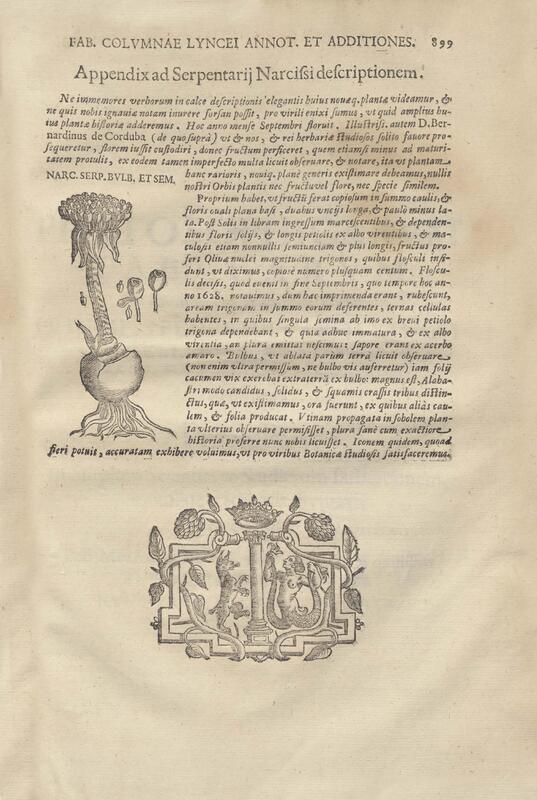 FAB. COLVMNAE LYNCEI ANNOT. ET ADDITIONES. 899
Appendix ad Serpentarij Narcissi descriptionem.
Ne immemores verborum in calce descriptionis elegantis huius nouæq. plantæ videamur, &
ne quis nobis ignauiæ notam inurere forsan possit, pro virili enixi sumus, vt quid amplius hu-
ius plantæ historiæ adderemus. Hoc anno mense Septembri floruit. Illustriss. autem D. Ber-
nardinus de Corduba (de quo suprà) vt & nos, & rei herbariæ studiosos solito fauore pro-
sequeretur, florem iussit custodiri, donec fructum perficeret, quem etiamsi minus ad maturi-
tatem protulis, ex eodem tamen imperfecto multa licuit obseruare, & notare, ita vt plantam
NARC. SERP. BVLB, ET SEM.
hanc rarioris, nouiq. planè generis existimare debeamus, nullis
nostri Orbis plantis nec fructu vel flore, nec specie similem.
Proprium habet, vt fructũ ferat copiosum in summo caulis, &
floris quasi plana basi, duabus vncijs longa, & paulò minus la-
ta. Post Solis in libram ingressum marcescentibus, & dependen-
tibus floris folijs, & longis petiolis ex albo virentibus, & ma-
culosis etiam nonnullis semiunciam & plus longis, fructus pro-
fert Oliuæ nuclei magnitudine trigonos, quibus flosculi insi-
dunt, vt diximus, copioso numero plusquam centum. Floscu-
lis decisis, quod euenit in fine Septembris, quo tempore hoc an-
no 1628. notauimus, dum hæc imprimenda erant, rubescunt,
aream trigonam in summo eorum deferentes, ternas cellulas
habentes, in quibus singula semina ab imo ex breui petiolo
trigona dependebant, & quia adhuc immatura, & ex albo
virentia, an plura emittat nescimus: sapore erant ex acerbo
amaro. Bulbus, vt ablata parùm terra licuit obseruare
(non enim vltra permissum, ne bulbo vis auferretur) iam folij
cacumen vix exerebat extra terrã ex bulbo: magnus est, Alaba-
stri modo candidus, solidus, & squamis crassis tribus distin-
ctus, quæ, vt existimamus, ora fuerunt, ex quibus aliàs cau-
lem, & folia producat. Vtinam propagata in sobolem plan-
ta vlterius obseruare permisisset, plura sanè cum exactiore
historia preferre nunc nobis licuisset. Iconem quidem, quoad
fieri potuit, accuratam exhibere voluimus, vt pro viribus Botanicæ studiosis satisfaceremus.